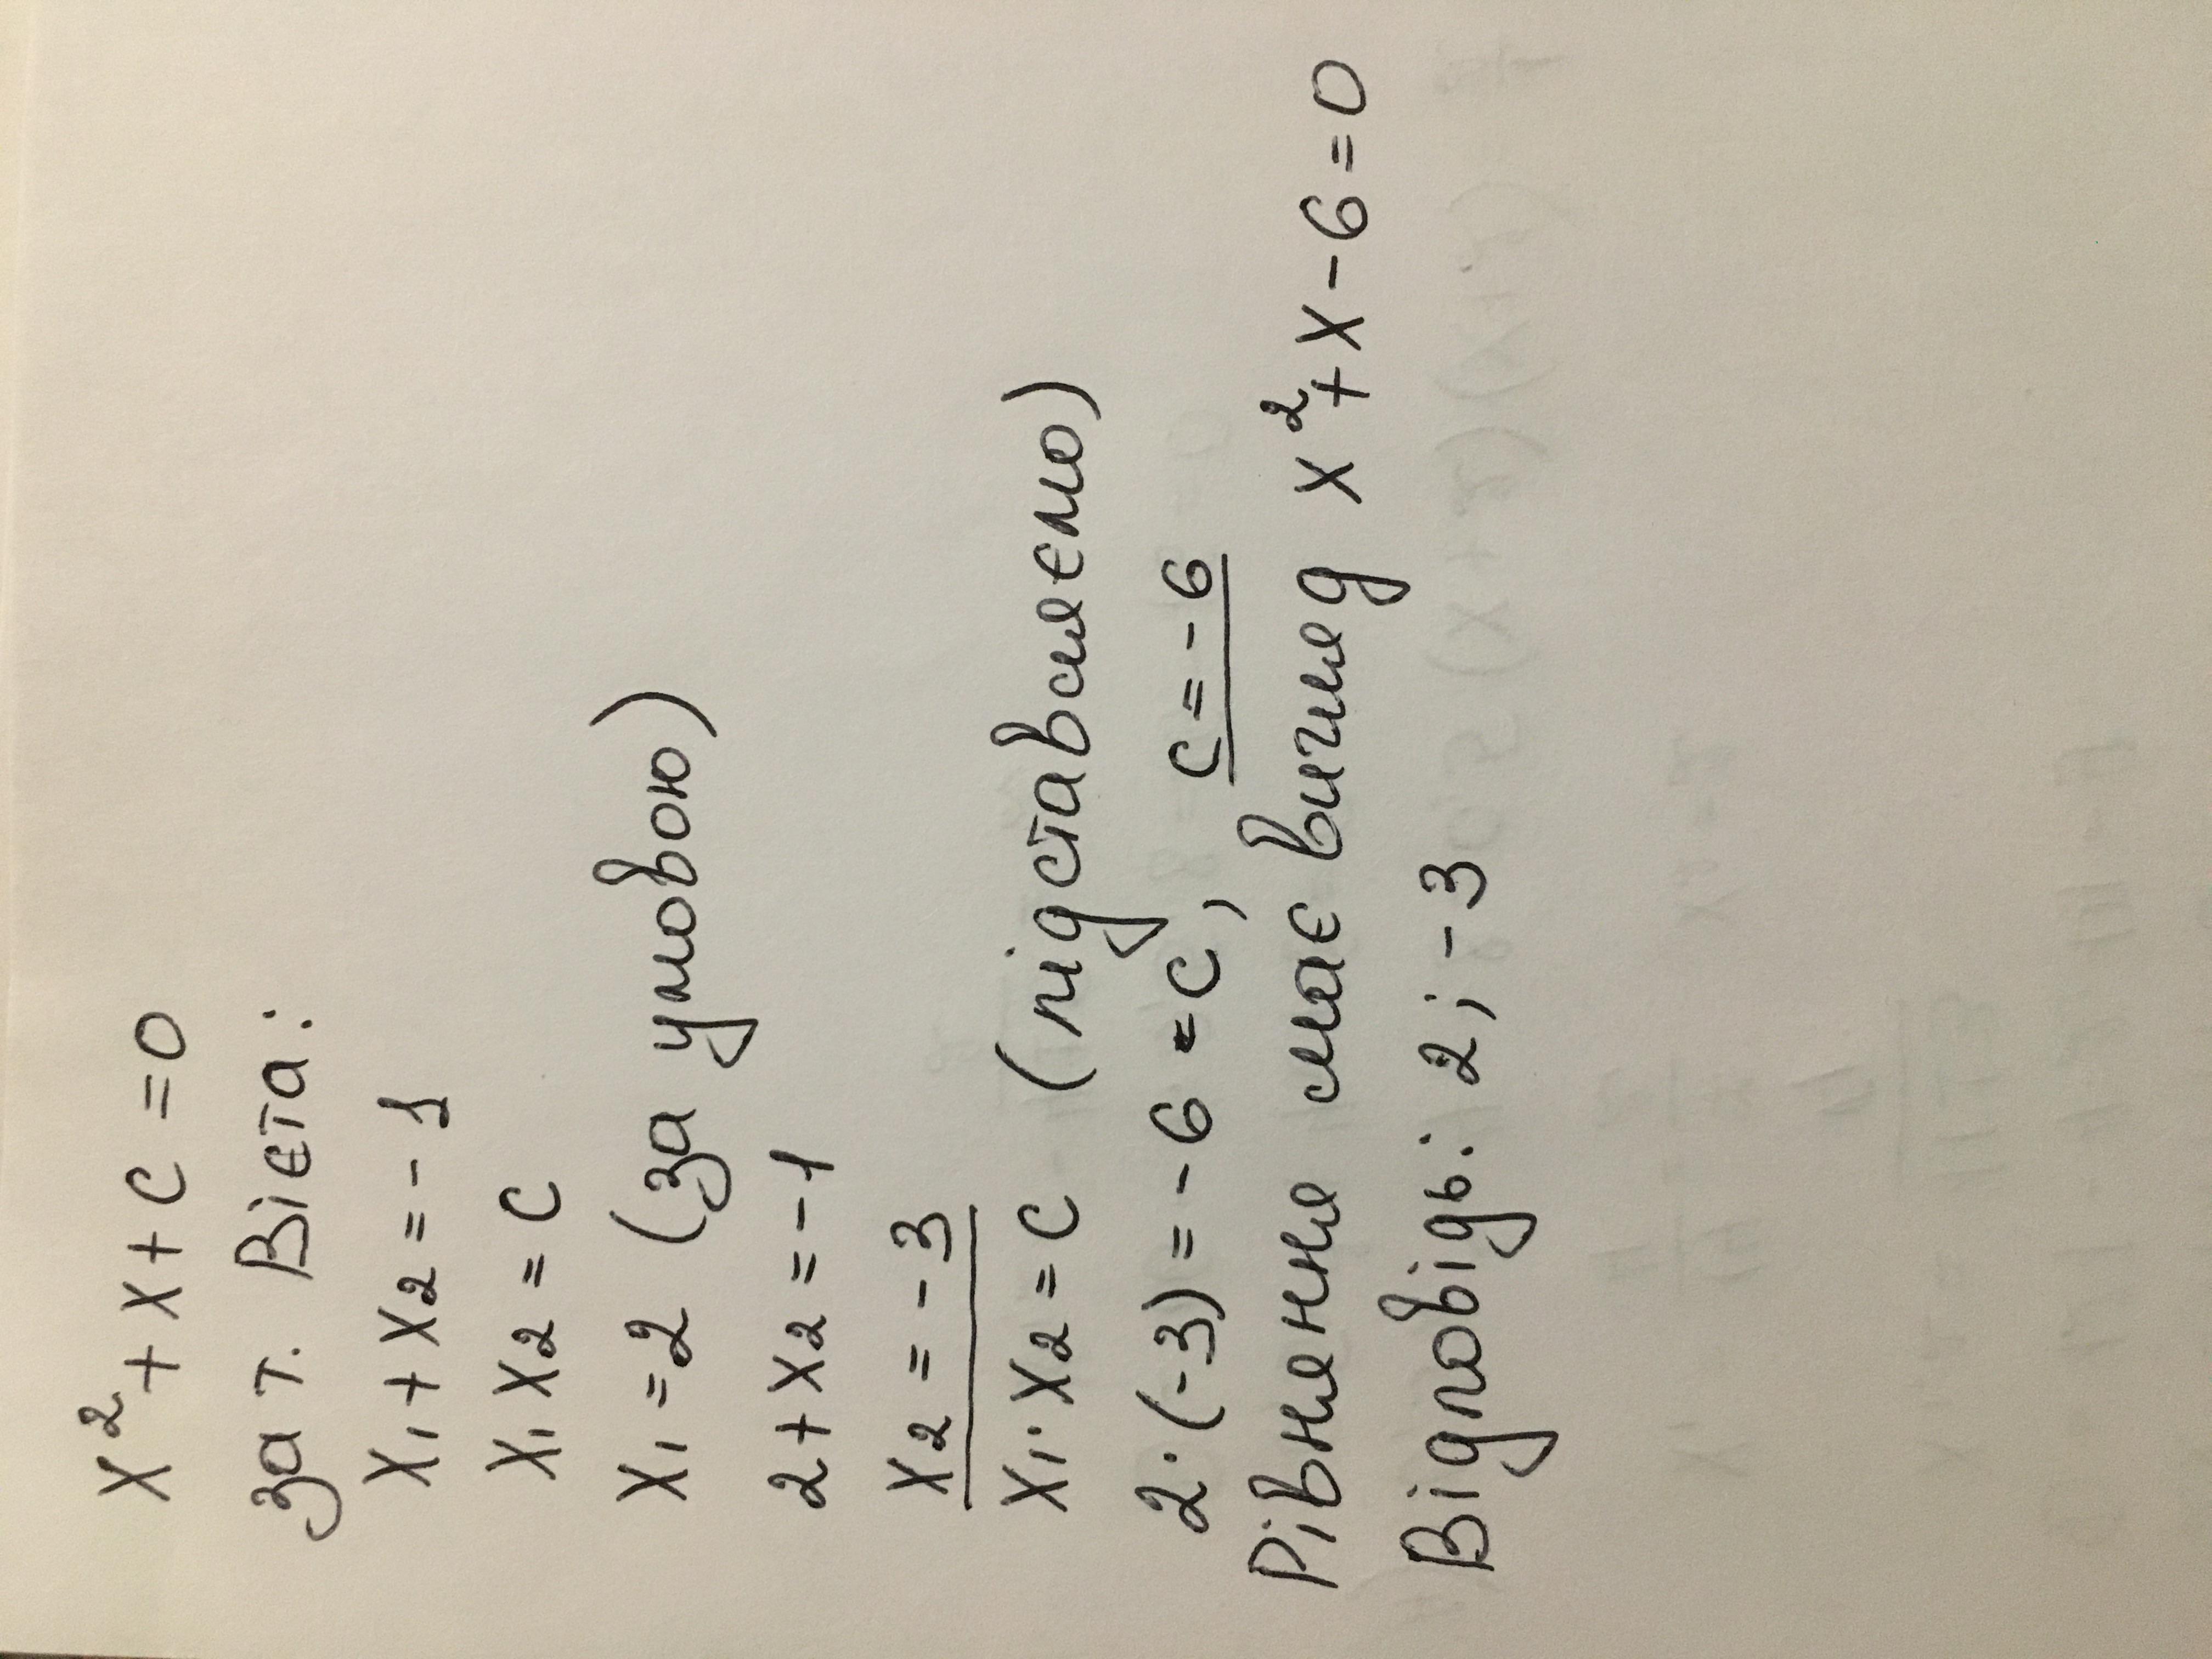 x² + x + c = 0
за т. Вієта:
x₁ + x₂ = -1
x₁ x₂ = c
x₁ = 2 (за умовою)
2 + x₂ = -1
x₂ = -3
x₁ · x₂ = c (підставляємо)
2 · (-3) = -6 = c, c = -6
Рівняння має вигляд x² + x - 6 = 0
Відповідь: 2; -3